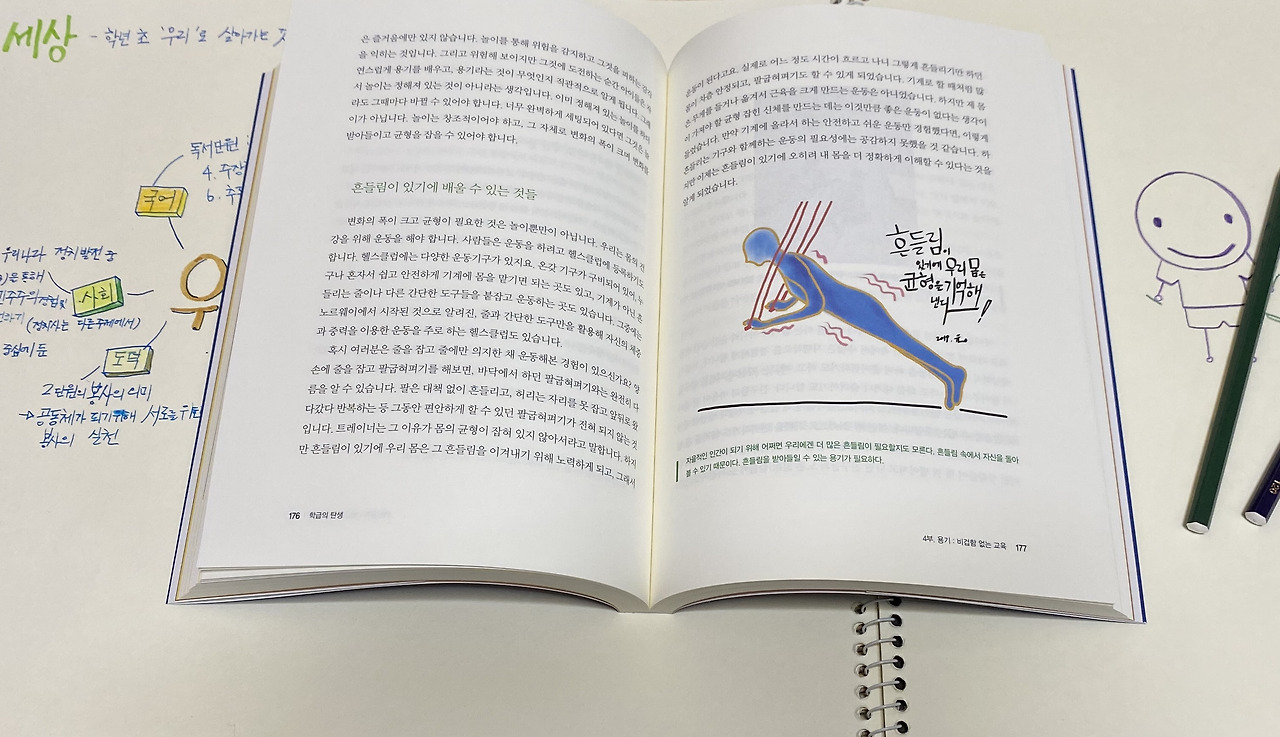 세상 - 학년 초 '우리'로 살아가는
독서단원
4. 주장
6. 추
국어
우리나라 정치발전
을 통해
민주주의
사회
(정치사는 다른 주제에서)
중심에 둠
도덕
2단원의 봉사의 의미
→ 공동체가 되기 위해 서로를 위
봉사의 실천
은 즐거움에만 있지 않습니다. 놀이를 통해 위험을 감지하고 그것을 피하는 감각
을 익히는 것입니다. 그리고 위험해 보이지만 그것에 도전하는 순간 아이들은 자
연스럽게 용기를 배우고, 용기라는 것이 무엇인지 직관적으로 알게 됩니다. 그래
서 놀이는 정해져 있는 것이 아니라는 생각입니다. 이미 정해져 있는 놀이를
라도 그때마다 바뀔 수 있어야 합니다. 너무 완벽하게 세팅되어 있다면 그것은 놀
이가 아닙니다. 놀이는 창조적이어야 하고, 그 자체로 변화의 폭이 크며 변화를
받아들이고 균형을 잡을 수 있어야 합니다.
흔들림이 있기에 배울 수 있는 것들
변화의 폭이 크고 균형이 필요한 것은 놀이뿐만이 아닙니다. 우리는 몸의 건
강을 위해 운동을 해야 합니다. 사람들은 운동을 하려고 헬스클럽에 등록하기도
합니다. 헬스클럽에는 다양한 운동기구가 있지요. 온갖 기구가 구비되어 있어, 누
구나 혼자서 쉽고 안전하게 기계에 몸을 맡기면 되는 곳도 있고, 기계가 아닌 흔
들리는 줄이나 다른 간단한 도구들을 붙잡고 운동하는 곳도 있습니다. 그중에는
노르웨이에서 시작된 것으로 알려진, 줄과 간단한 도구만을 활용해 자신의 체중
과 중력을 이용한 운동을 주로 하는 헬스클럽도 있습니다.
혹시 여러분은 줄을 잡고 줄에만 의지한 채 운동해본 경험이 있으신가요? 양
손에 줄을 잡고 팔굽혀펴기를 해보면, 바닥에서 하던 팔굽혀펴기와는 완전히 다
름을 알 수 있습니다. 팔은 대책 없이 흔들리고, 허리는 자리를 못 잡고 앞뒤로 왔
다갔다 반복하는 등 그동안 편안하게 할 수 있던 팔굽혀펴기가 전혀 되지 않는 것
입니다. 트레이너는 그 이유가 몸의 균형이 잡혀 있지 않아서라고 말합니다. 하지
만 흔들림이 있기에 우리 몸은 그 흔들림을 이겨내기 위해 노력하게 되고, 그래서
176 학급의 탄생
운동이 된다고요. 실제로 어느 정도 시간이 흐르고 나니 그렇게 흔들리기만 하던
몸이 차츰 안정되고, 팔굽혀펴기도 할 수 있게 되었습니다. 기계로 할 때처럼 많
은 무게를 들거나 옮겨서 근육을 크게 만드는 운동은 아니었습니다. 하지만 제 몸
이 가져야 할 균형 잡힌 신체를 만드는 데는 이것만큼 좋은 운동이 없다는 생각이
들었습니다. 만약 기계에 올라서 하는 안전하고 쉬운 운동만 경험했다면, 이렇게
흔들리는 기구와 함께하는 운동의 필요성에는 공감하지 못했을 것 같습니다. 하
지만 이제는 흔들림이 있기에 오히려 내 몸을 더 정확하게 이해할 수 있다는 것을
알게 되었습니다.
흔들림이
있기에 우리 몸은
균형을 기억해
낸다!
자율적인 인간이 되기 위해 어쩌면 우리에겐 더 많은 흔들림이 필요할지도 모른다. 흔들림 속에서 자신을 돌아
볼 수 있기 때문이다. 흔들림을 받아들일 수 있는 용기가 필요하다.
4부. 용기 : 비겁함 없는 교육 177